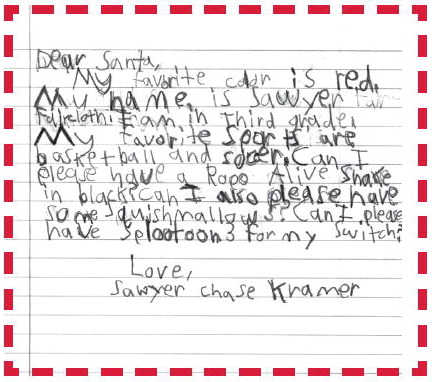 Dear Santa,
My favorite color is red.
My name is Sawyer
I am in Third grade.
My favorite Sports are
basketball and socer. Can I
please have a Robo Alive Snake
in black? Can I also please have
some squishmallows? Can I please
have Splootoon3 for my switch?
Love,
Sawyer chase Kramer